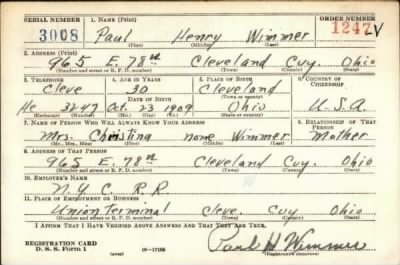 SERIAL NUMBER 1. NAME (Print) ORDER NUMBER
3008 Paul Henry Wimmer 1247 V
(First) (Middle) (Last)
2. ADDRESS (Print)
965 E. 78th Cleveland Cuy. Ohio
(Number and street or R. F. D. number) (Town) (County) (State)
3. TELEPHONE 4. AGE IN YEARS 5. PLACE OF BIRTH 6. COUNTRY OF CITIZENSHIP
Cleve 30 Cleveland
DATE OF BIRTH (Town or county)
He 3247 Oct. 23 1909 Ohio U.S.A.
(Exchange) (Number) (Mo.) (Day) (Yr.) (State or country)
7. NAME OF PERSON WHO WILL ALWAYS KNOW YOUR ADDRESS 8. RELATIONSHIP OF THAT PERSON
Mrs. Christina none Wimmer Mother
(Mr., Mrs., Miss) (First) (Middle) (Last)
9. ADDRESS OF THAT PERSON
965 E. 78th Cleveland Cuy. Ohio
(Number and street or R. F. D. number) (Town) (County) (State)
10. EMPLOYER'S NAME
N.Y.C. R.R.
11. PLACE OF EMPLOYMENT OR BUSINESS
Union Terminal Cleve. Cuy Ohio
(Number and street or R. F. D. number) (Town) (County) (State)
I AFFIRM THAT I HAVE VERIFIED ABOVE ANSWERS AND THAT THEY ARE TRUE.
REGISTRATION CARD
D. S. S. Form 1 (over) 16-17105 Paul H Wimmer